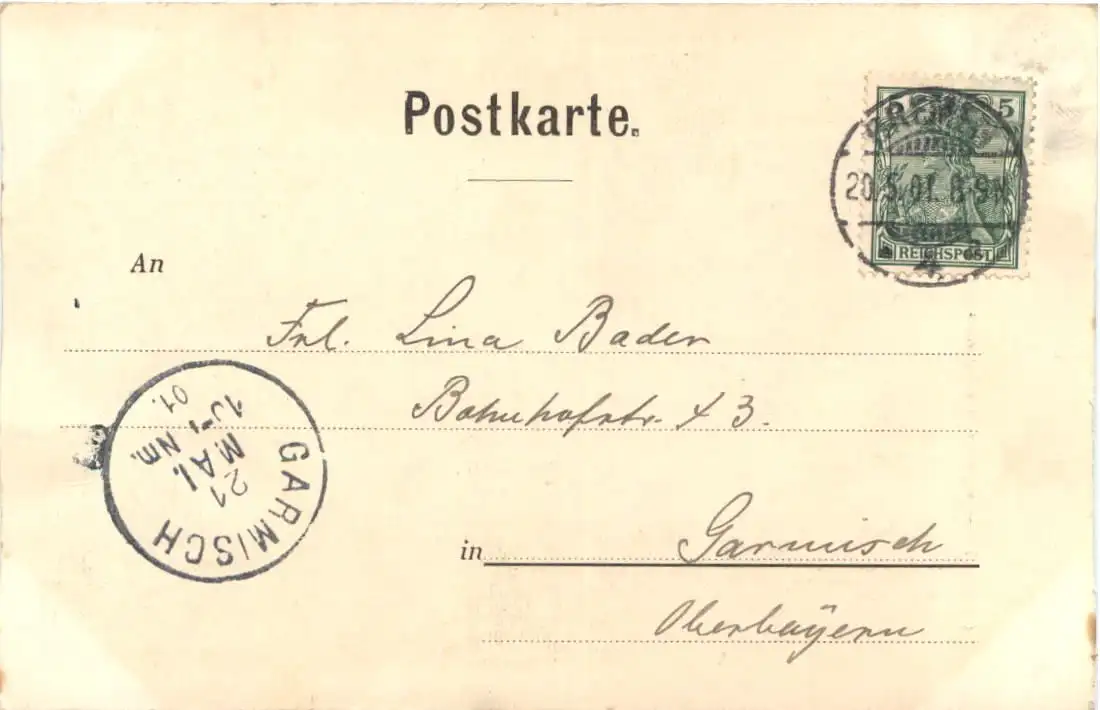 Postkarte.
5
20.5.01. 8-9N
REICHSPOST
4
An
Frl. Lina Bader
Bahnhofstr. 43.
in Garmisch
Oberbayern
GARMISCH
21
MAI.
Nm.
01.